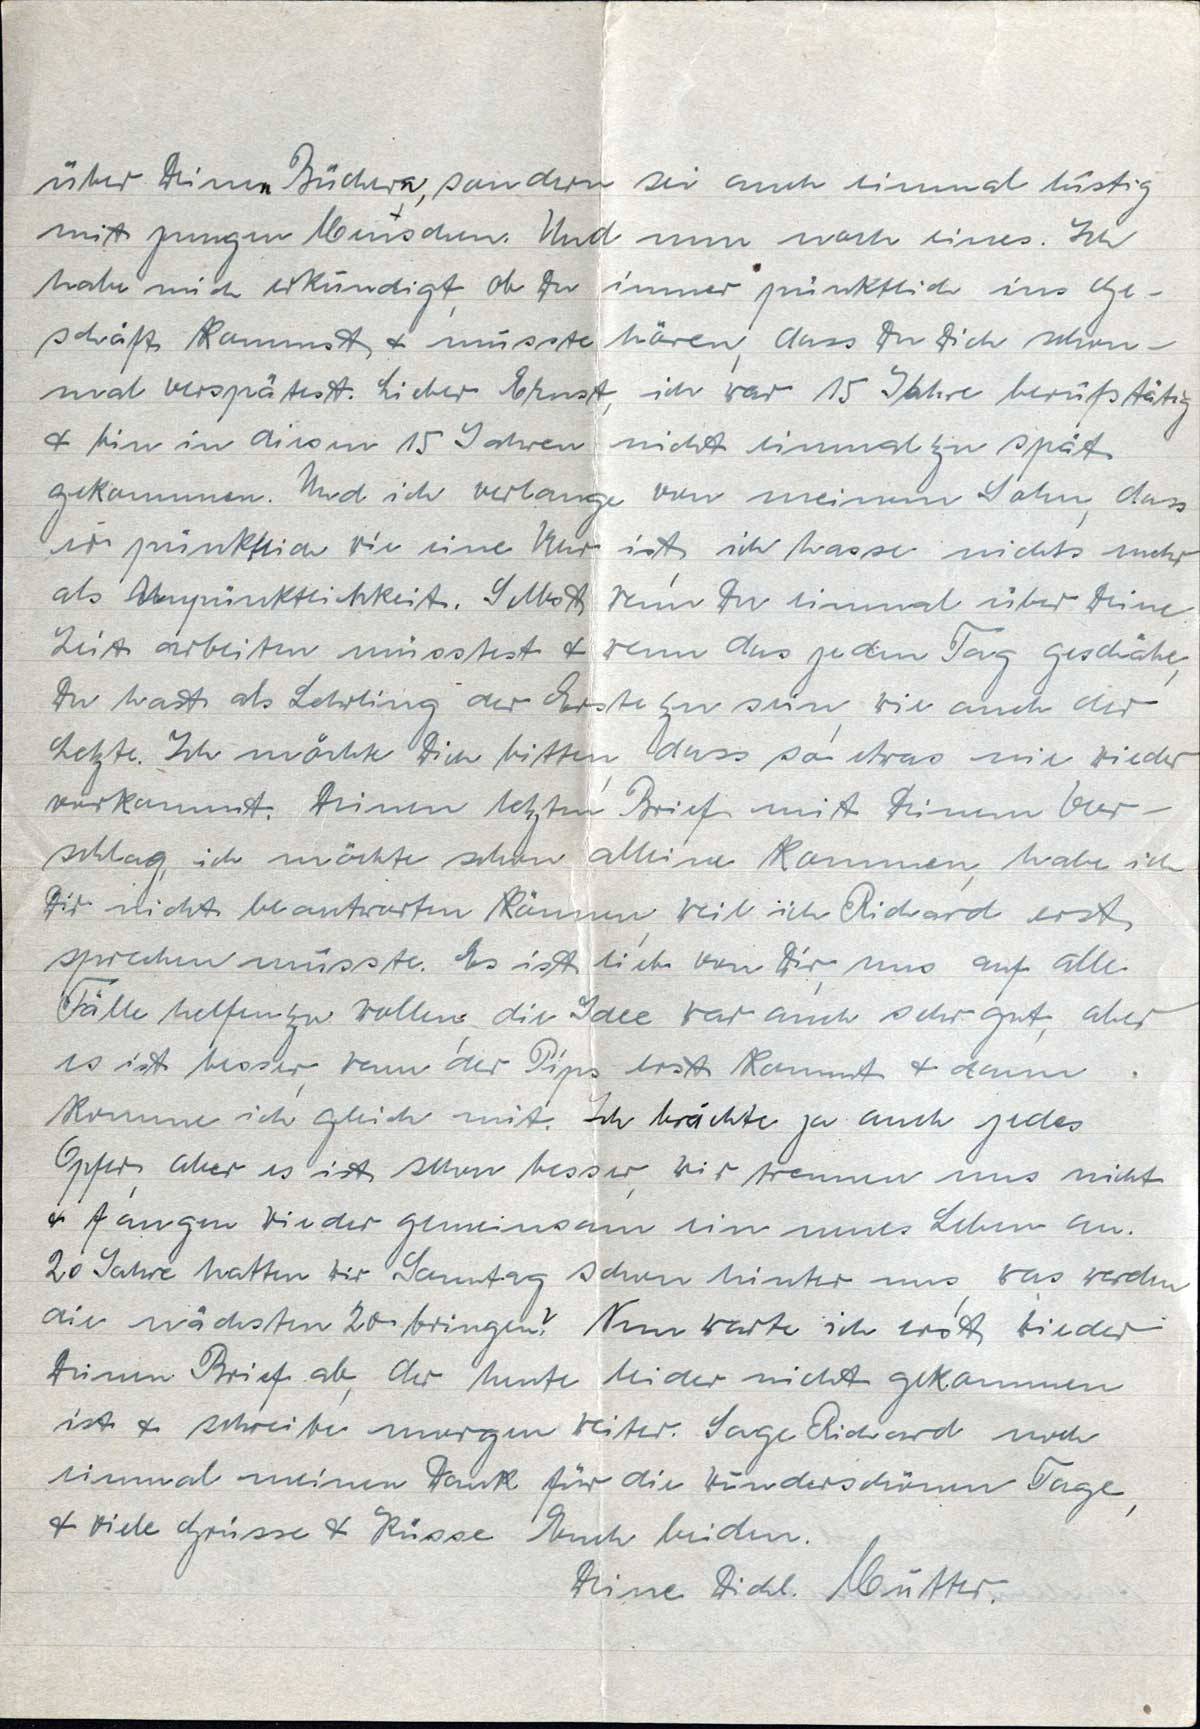 über Deinen Büchern, sondern sei auch einmal lustig
mit jungen Menschen. Und nun noch eines. Ich
habe mich erkundigt, ob Du immer pünktlich ins Ge-
schäft kommst & musste hören, dass Du Dich schon-
mal verspätest. Lieber Ernst, ich war 15 Jahre berufstätig
& bin in diesen 15 Jahren nicht einmal zu spät
gekommen. Und ich verlange von meinem Sohn, dass
er pünktlich wie eine Uhr ist, ich hasse nichts mehr
als Unpünktlichkeit. Selbst wenn Du einmal über Deine
Zeit arbeiten müsstest & wenn das jeden Tag geschähe,
Du hast als Lehrling der Erste zu sein, wie auch der
Letzte. Ich möchte Dich bitten, dass so etwas nie wieder
vorkommt. Deinen letzten Brief mit Deinem Vor-
schlag, ich möchte schon alleine kommen, habe ich
Dir nicht beantworten können, weil ich Richard erst
sprechen musste. Es ist lieb von Dir, uns auf alle
Fälle helfen zu wollen, die Idee war auch sehr gut, aber
es ist besser, wenn der Pips erst kommt & dann
komme ich gleich mit. Ich brächte ja auch jedes
Opfer, aber es ist schon besser, wir trennen uns nicht
& fangen wieder gemeinsam ein neues Leben an.
20 Jahre hatten wir Sonntag schon hinter uns, was werden
die nächsten 20 bringen? Nun warte ich erst wieder
Deinen Brief ab, der heute leider nicht gekommen
ist & schreibe morgen weiter. Sage Richard noch
einmal meinen Dank für die wunderschönen Tage,
& viele Grüsse & Küsse Euch beiden.
Deine Dichl. Mutter.